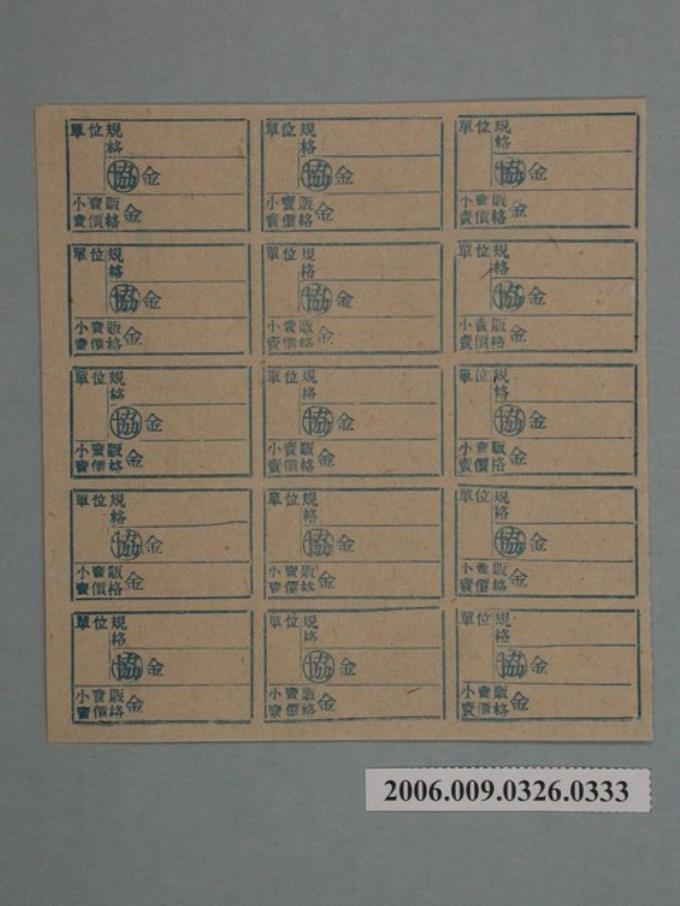 單位規格 單位規格 單位規格
協金 協金 協金
小賣販賣價格金 小賣販賣價格金 小賣販賣價格金
單位規格 單位規格 單位規格
協金 協金 協金
小賣販賣價格金 小賣販賣價格金 小賣販賣價格金
單位規格 單位規格 單位規格
協金 協金 協金
小賣販賣價格金 小賣販賣價格金 小賣販賣價格金
單位規格 單位規格 單位規格
協金 協金 協金
小賣販賣價格金 小賣販賣價格金 小賣販賣價格金
單位規格 單位規格 單位規格
協金 協金 協金
小賣販賣價格金 小賣販賣價格金 小賣販賣價格金
2006.009.0326.0333